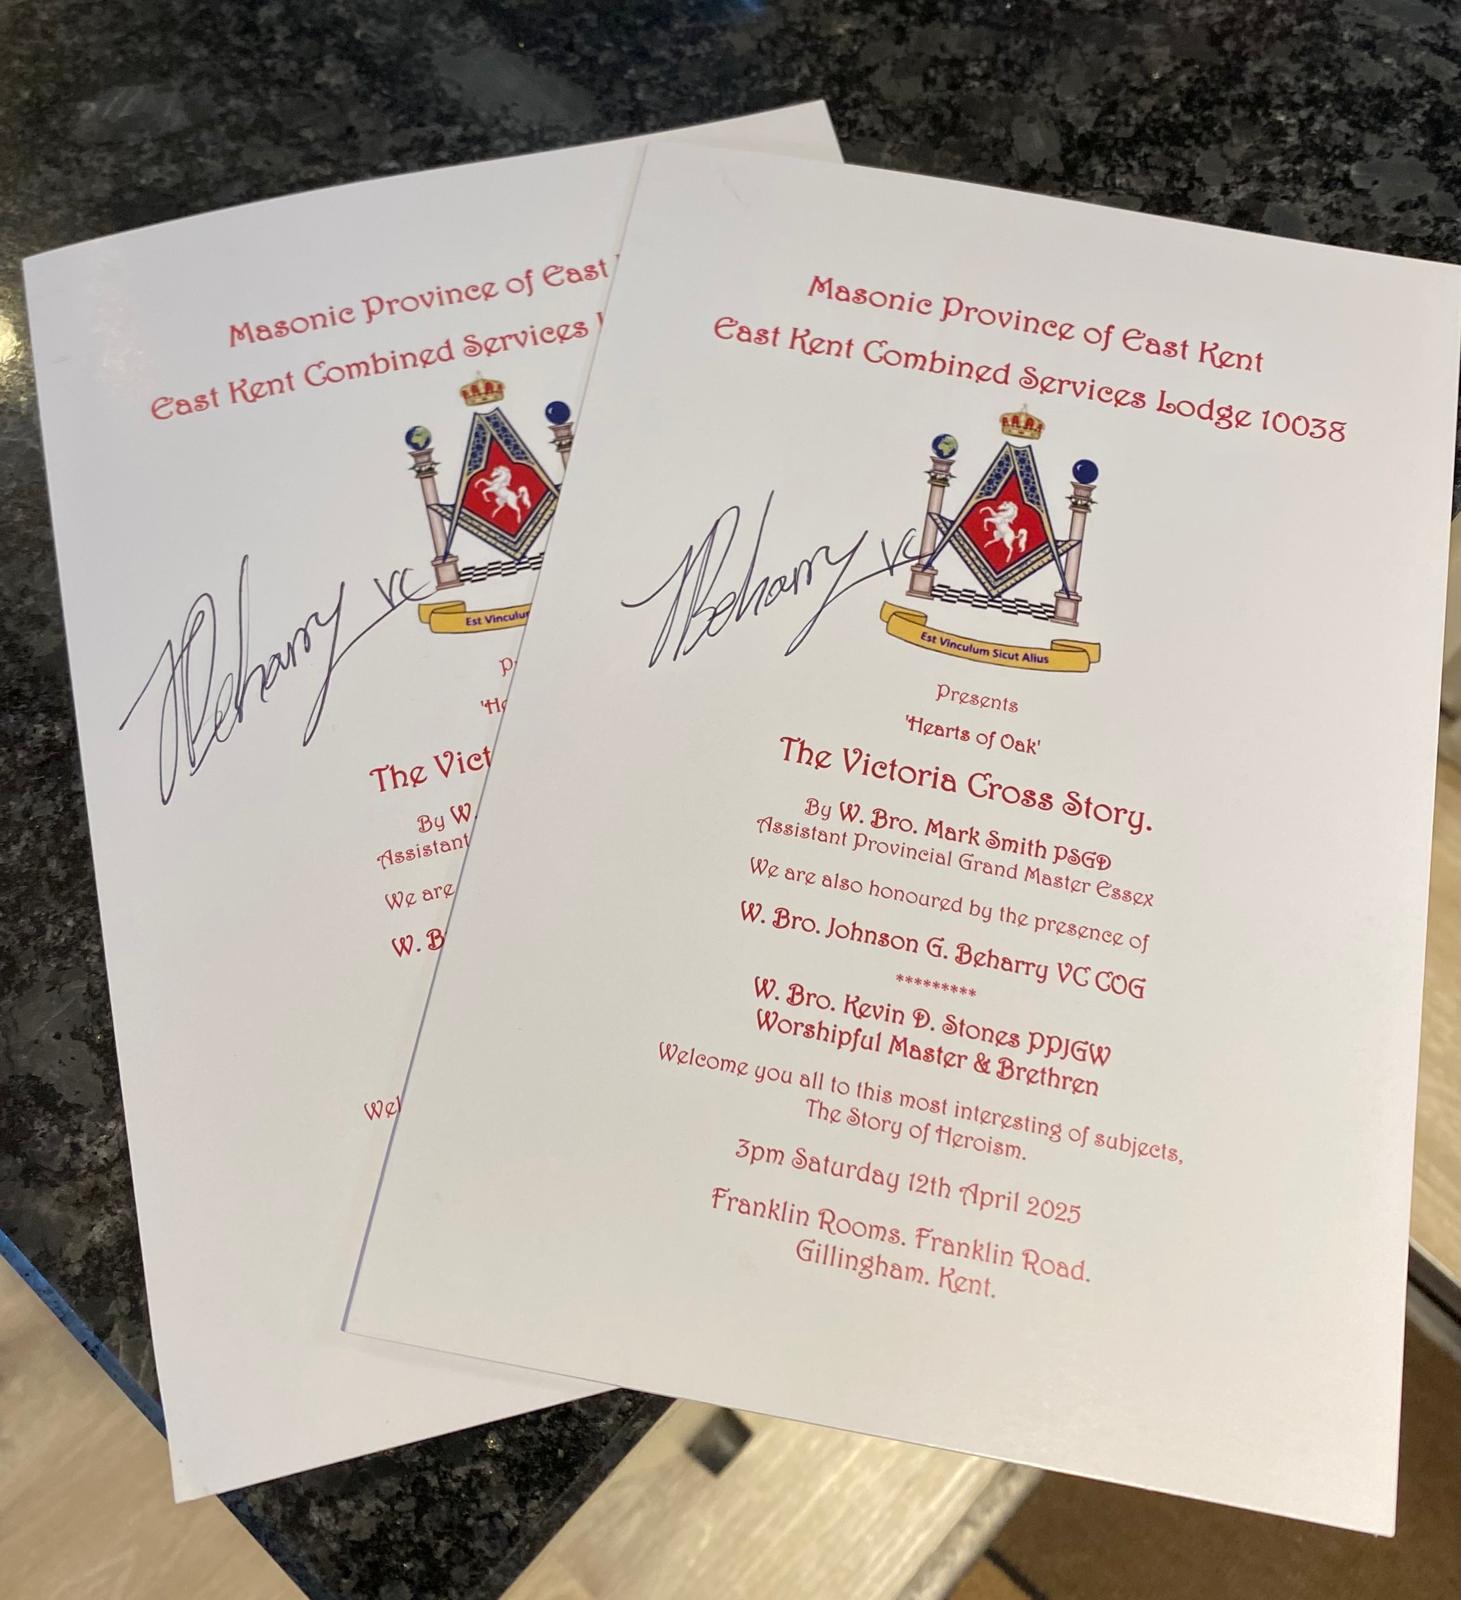 Masonic Province of East
East Kent Combined Services
JBeharry VC
Est Vinculum
The Vict
By W.
Assistant
We are
W. B
Wel
Masonic Province of East Kent
East Kent Combined Services Lodge 10038
JBeharry VC
Est Vinculum Sicut Alius
Presents
'Hearts of Oak'
The Victoria Cross Story.
By W. Bro. Mark Smith PSGD
Assistant Provincial Grand Master Essex
We are also honoured by the presence of
W. Bro. Johnson G. Beharry VC COG
*********
W. Bro. Kevin D. Stones PPJGW
Worshipful Master & Brethren
Welcome you all to this most interesting of subjects,
The Story of Heroism.
3pm Saturday 12th April 2025
Franklin Rooms. Franklin Road.
Gillingham. Kent.